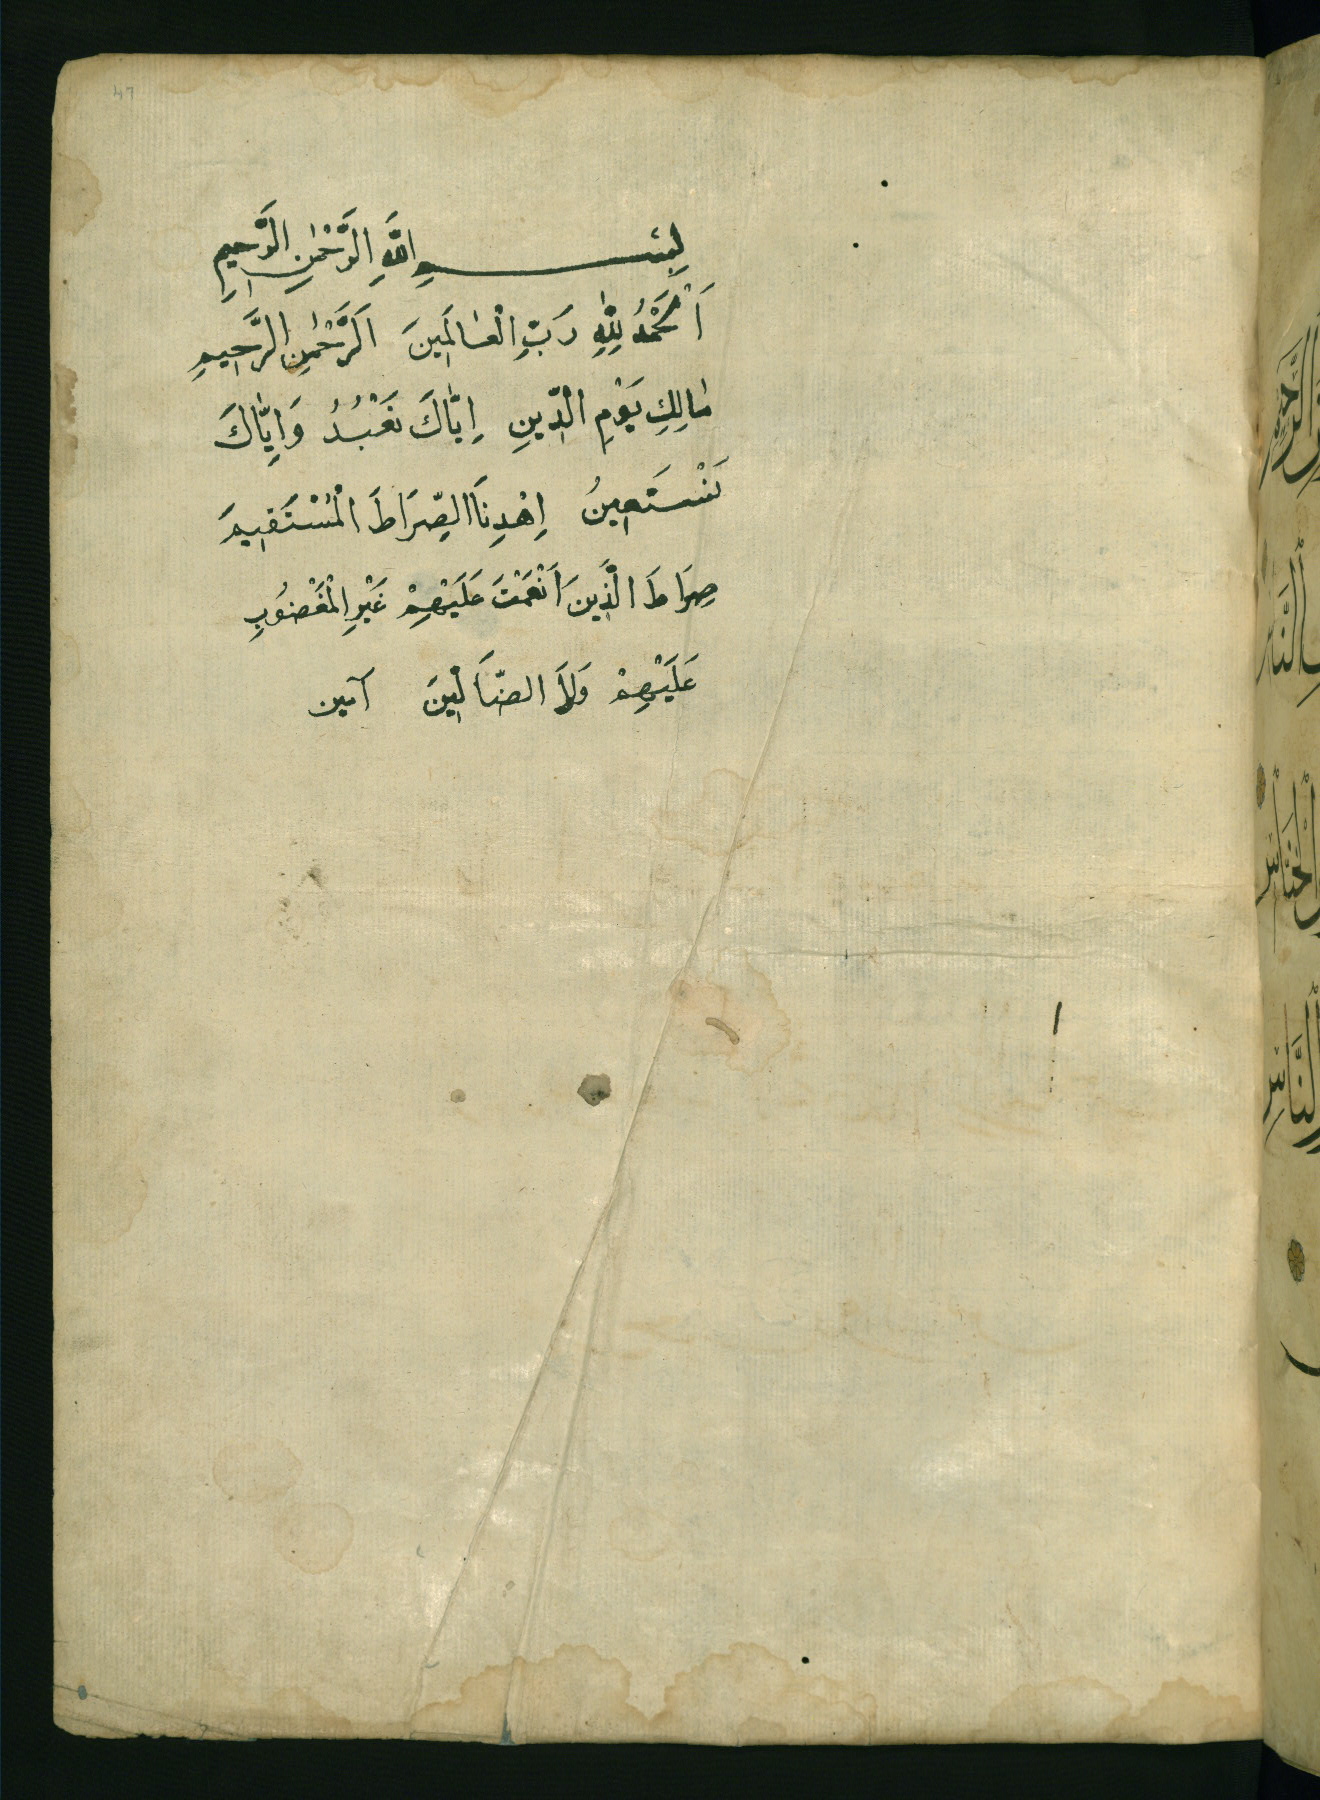 47
بِسْمِ اللَّهِ الرَّحْمٰنِ الرَّحِيمِ
اَلْحَمْدُ لِلّٰهِ رَبِّ الْعَالَمِينَ اَلرَّحْمٰنِ الرَّحِيمِ
مَالِكِ يَوْمِ الدِّينِ اِيَّاكَ نَعْبُدُ وَاِيَّاكَ
نَسْتَعِينُ اِهْدِنَا الصِّرَاطَ الْمُسْتَقِيمَ
صِرَاطَ الَّذِينَ اَنْعَمْتَ عَلَيْهِمْ غَيْرِ الْمَغْضُوبِ
عَلَيْهِمْ وَلَا الضَّالِّينَ آمين